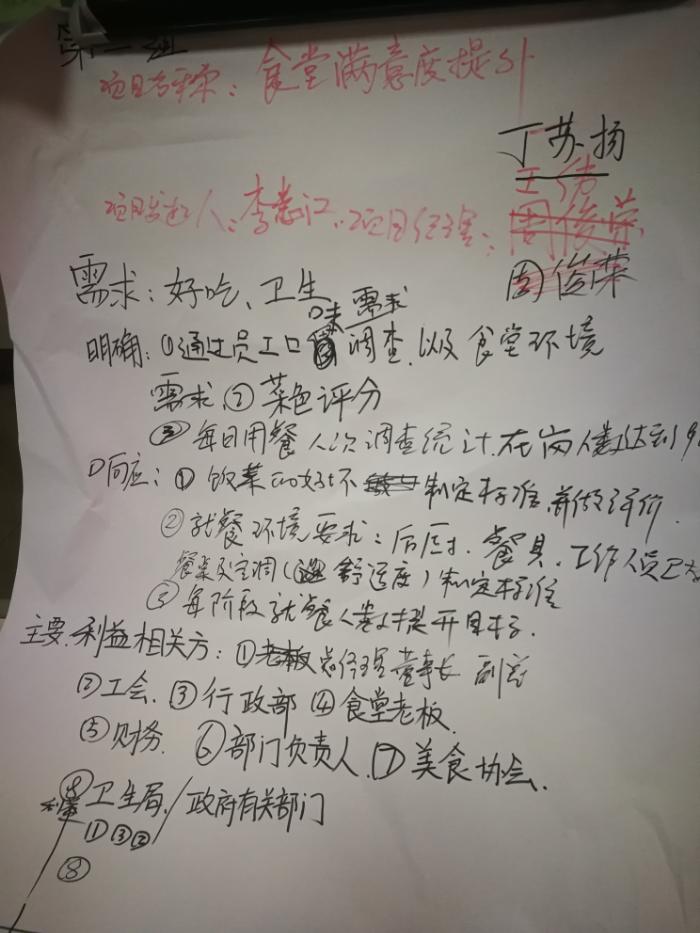 第一组
项目名称：食堂满意度提升
丁苏扬
王倩
项目发起人：李志江、项目经理：周俊荣
周俊荣
需求：好吃、卫生
味 需求
明确：①通过员工口调查、以及食堂环境
需求、②菜色评分
③每日用餐人次调查统计、在岗人数达到9
响应：①饭菜的好坏制定标准，并做评价
②就餐环境要求：后厨、餐具、工作人员卫
餐桌及空调（舒适度）制定标准
③每阶段就餐人数提升目标.
主要利益相关方：①老板总经理董事长 副总
②工会、③行政部 ④食堂老板、
⑤财务、⑥部门负责人、⑦美食协会、
⑧卫生局/政府有关部门
①③②
⑧